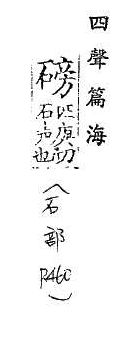 四聲篇海
磅匹庚切
石声也
（石部
P.460）